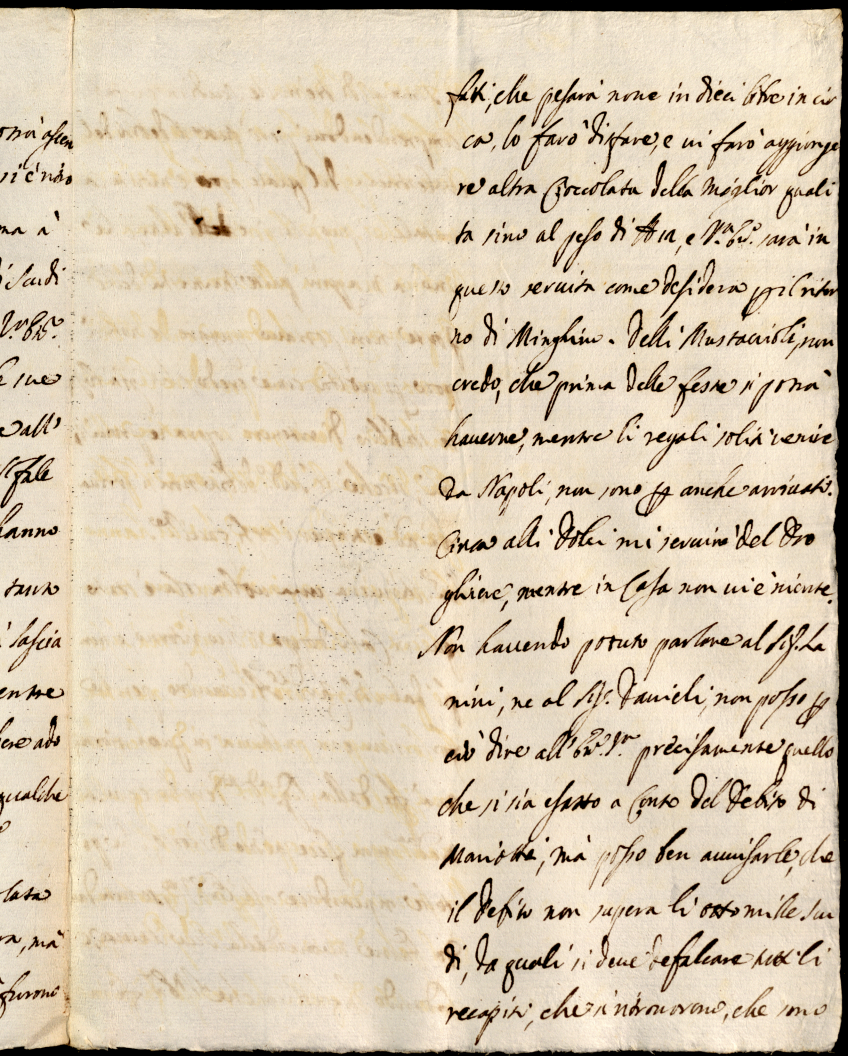 orrà ascen
vi è n'ro
ma à
Scudi
V.ra Ecc.za
e sue
e all'
fale
hanno
tanto
lascia
entre
bere ado
qualche
lata
ra, mà
furono
fati, che pesarà nove in dieci libre in cir
ca, lo farò disfare, e vi farò aggiunge
re altra Cioccolata della Miglior quali
ta sino al peso di , e V.ra Ecc.za sarà in
questo servita come desidera p il ritor
no di Minghino. Delli Mustaccioli, non
credo, che prima delle feste si potrà
haverne, mentre li regali soliti venire
da Napoli, non sono p anche arrivati.
Circa alli Dolci mi servirò del Dro
ghiere, mentre in Casa non vi è niente.
Non havendo potuto parlare al Sig.r La
nini, ne al Sig.r Danieli, non posso p
ciò dire all' Ecc.za V.ra precisamente quello
che si sia esatto a Conto del Debito di
Mariotti, mà posso ben avvisarle, che
il Debito non supera li otto mille scu
di, da quali si deve defalcare tutti li
recapiti, che si ritrovorono, che sono